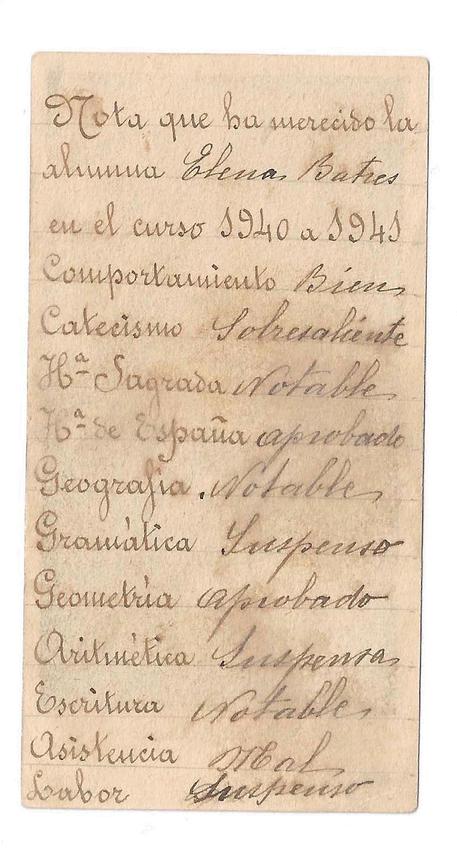 Nota que ha merecido la
alumna Elena Batres
en el curso 1940 a 1941
Comportamiento Bien
Catecismo Sobresaliente
Hª Sagrada Notable
Hª de España aprobado
Geografia Notable
Gramática Suspenso
Geometría aprobado
Aritmética Suspensa
Escritura Notable
Asistencia Mal
Labor Suspenso